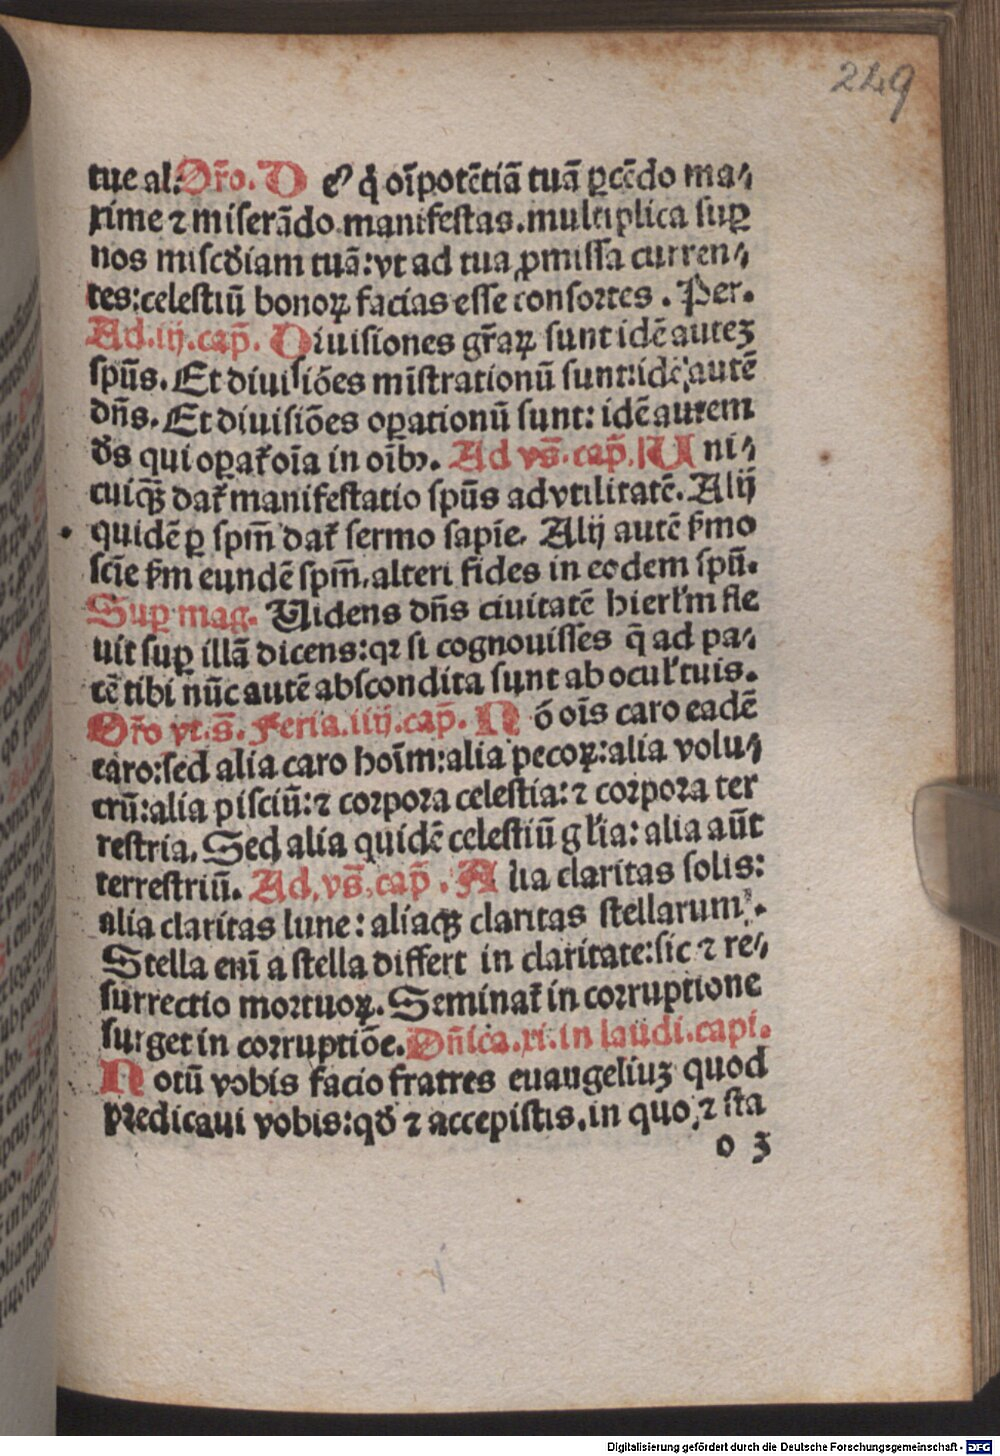 249
tue al. Or̄o. D eꝰ q̇ oı̄potētiā tuā ꝑcēdo ma⸗
xime ⁊ miserādo manifestas. multiplica suꝑ
nos mis̄cdiam tuā: vt ad tua ꝓmissa curren⸗
tes: celestiū bonoꝝ facias esse consortes. Per.
Ad.iij.cap̄. Diuisiones gr̄aꝝ sunt idē auteꝫ
spūs. Et diuisiōes mı̄strationū sunt: idē autē
dn̄s. Et diuisiōes oꝑationū sunt: idē autem
d̄s qui oꝑat̄ oı̄a in oı̄bꝰ. Ad vs̄. cap̄. U ni⸗
cuiqꝫ dat̄ manifestatio spūs ad vtilitatē. Alij
quidē ꝑ spm̄ dat̄ sermo sapīe. Alij autē s̄mo
scīe s̄m eundē spm̄. alteri fides in eodem spū.
Suꝑ mag. Uidens dn̄s ciuitatē hierl̄m fle
uit suꝑ illā dicens: qꝛ si cognouisses q̄ ad pa⸗
cē tibi nūc autē abscondita sunt ab ocul̄ tuis.
Or̄o vt. s̄. Feria.iiij.cap̄. N ō oı̄s caro eadē
caro: sed alia caro hoı̄m: alia pecoꝝ: alia volu⸗
crū: alia pisciū: ⁊ corpora celestia: ⁊ corpora ter
restria. Sed alia quidē celestiū gl̄ia: alia aūt
terrestriū. Ad. vs̄. cap̄. A lia claritas solis:
alia claritas lune: aliaqꝫ claritas stellarum.
Stella enı̄ a stella differt in claritate: sic ⁊ re⸗
surrectio mortuoꝝ. Seminat̄ in corruptione
surget in corruptiōe. Dn̄ica.xi. in laudi. capi.
N otū vobis facio fratres euangeliuꝫ quod
predicaui vobis: qd̄ ⁊ accepistis. in quo ⁊ sta
o 3
Digitalisierung gefördert durch die Deutsche Forschungsgemeinschaft - DFG